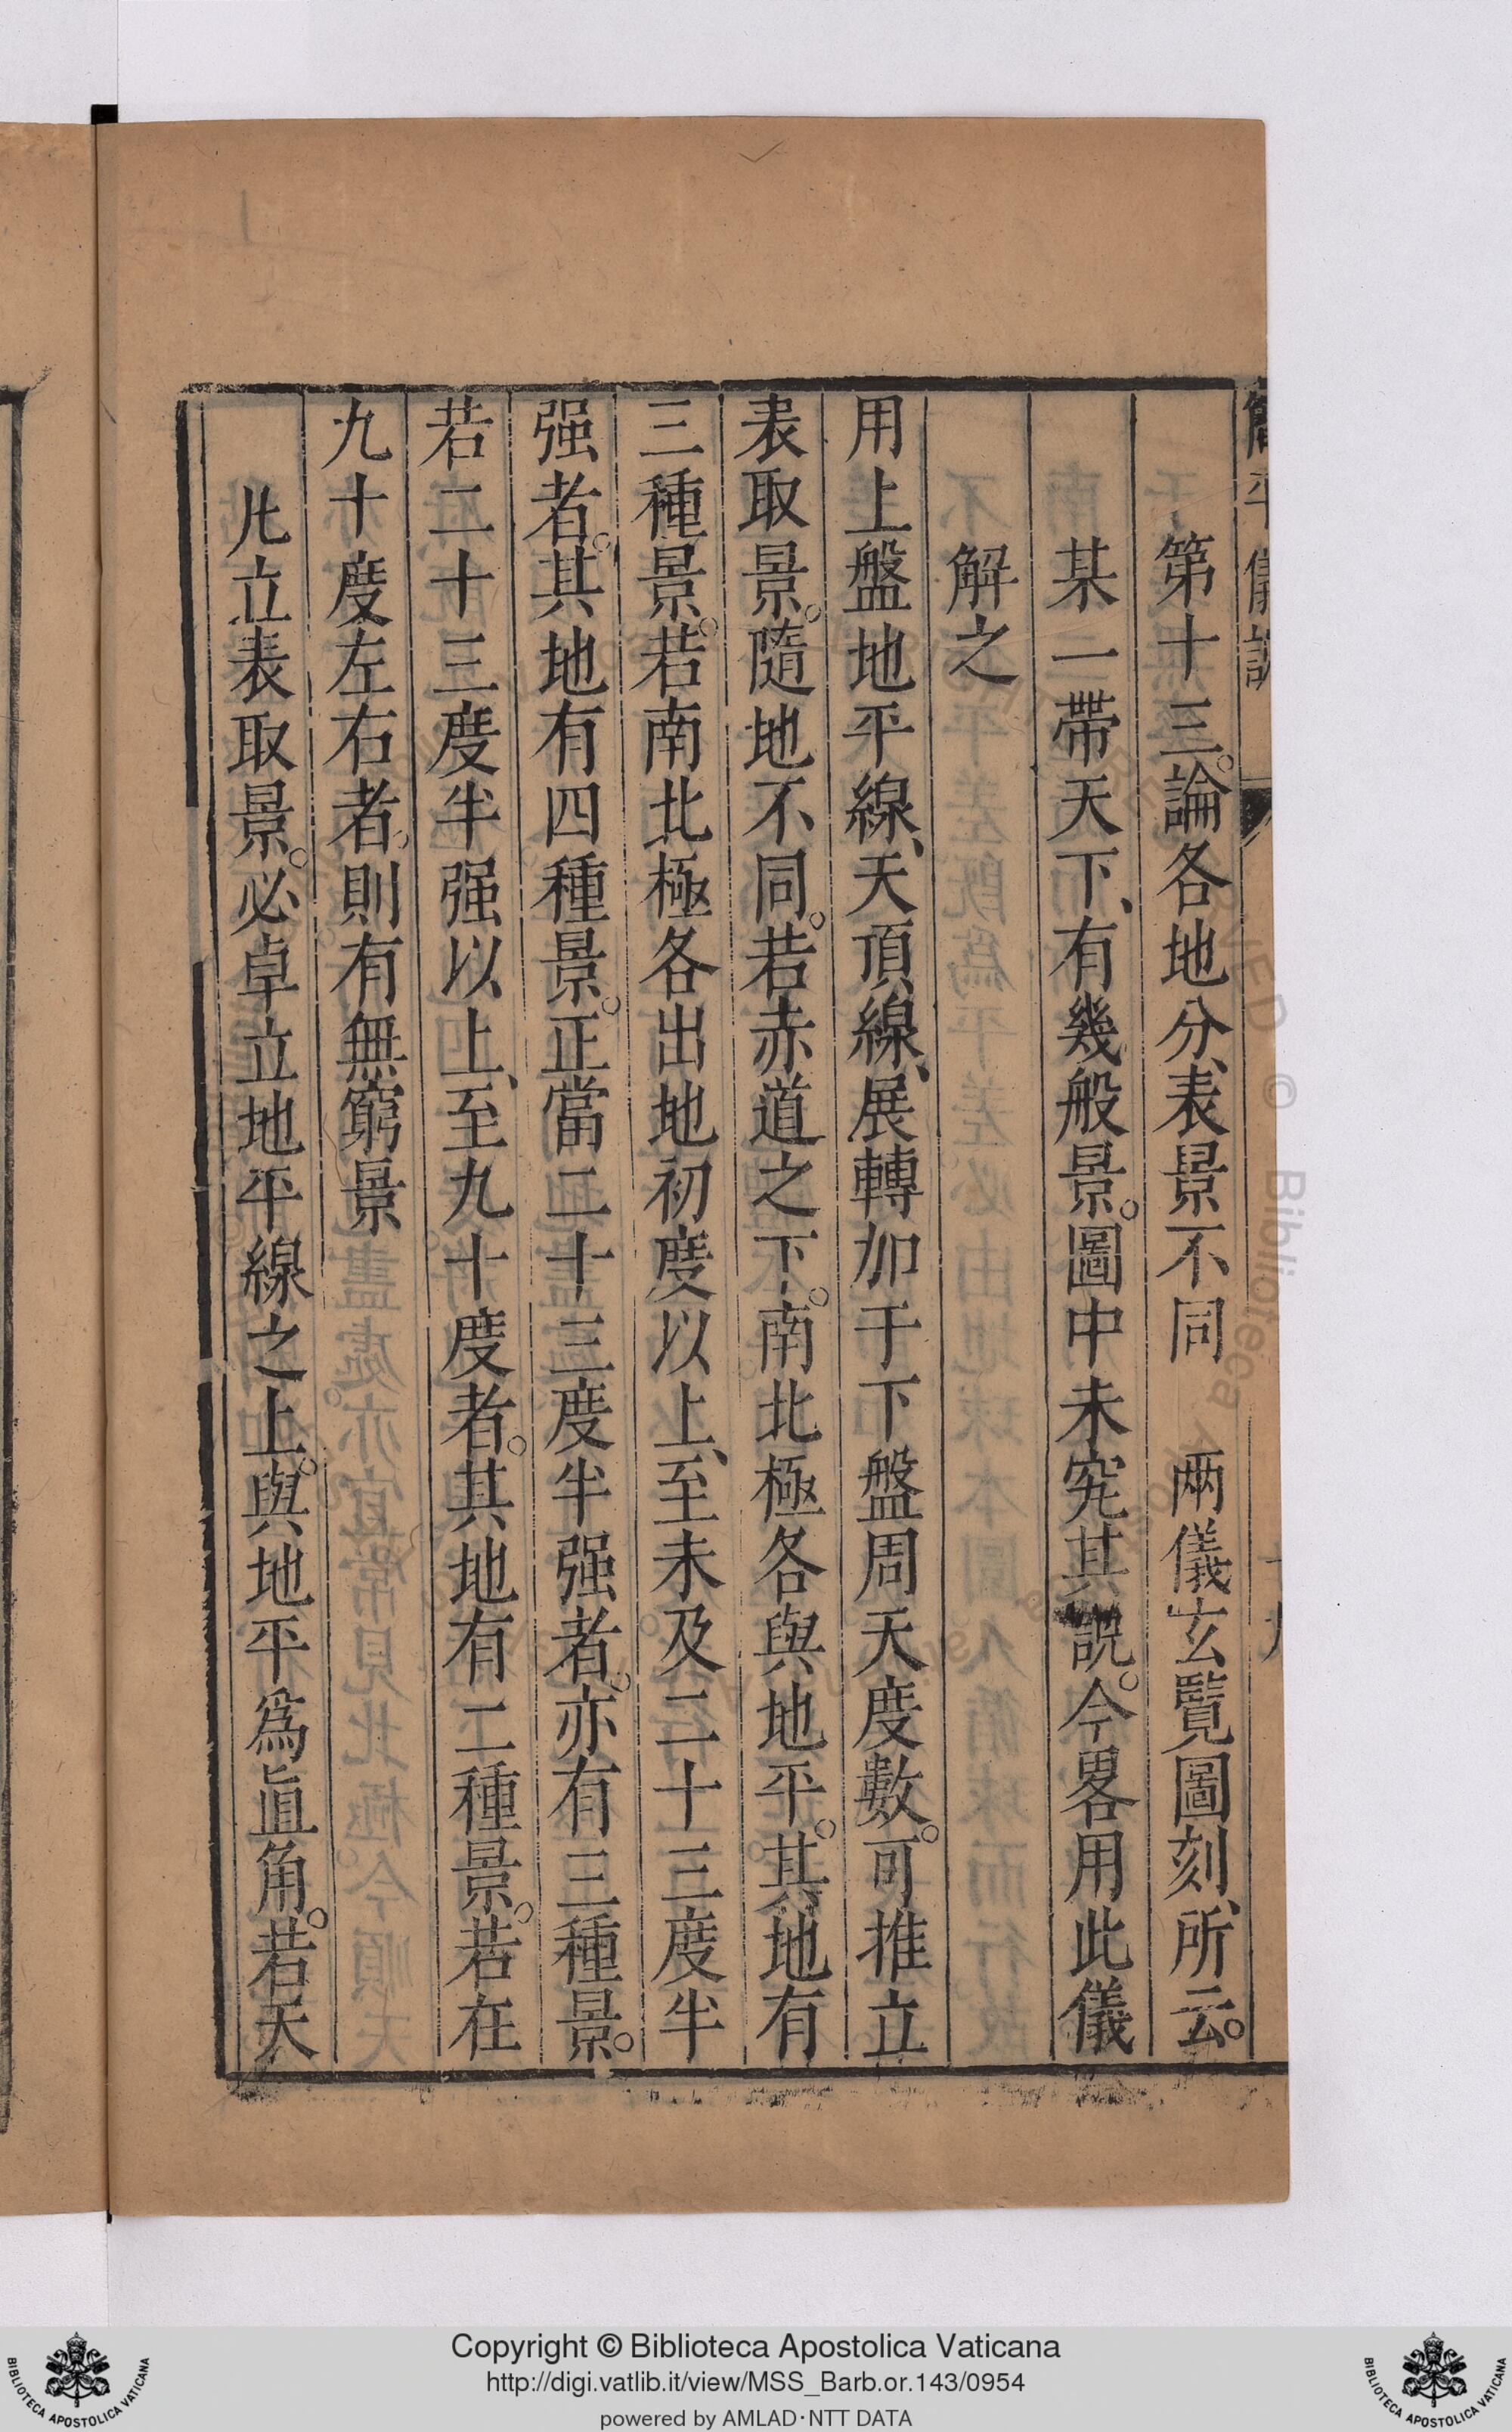 簡平儀說
十九
第十三。論各地分、表景不同　兩儀玄覽圖刻、所云。
某一帶天下、有幾般景。圖中未究其說。今畧用此儀
解之
用上盤地平線、天頂線、展轉加于下盤周天度數。可推立
表取景。隨地不同。若赤道之下。南北極各與地平。其地有
三種景。若南北極各出地初度以上、至未及二十三度半
强者。其地有四種景。正當二十三度半强者。亦有三種景。
若二十三度半强以上、至九十度者。其地有二種景。若在
九十度左右者。則有無窮景
凡立表取景。必卓立地平線之上。與地平爲直角。若天
Copyright © Biblioteca Apostolica Vaticana
http://digi.vatlib.it/view/MSS_Barb.or.143/0954
powered by AMLAD·NTT DATA
BIBLIOTECA APOSTOLICA VATICANA
BIBLIOTECA APOSTOLICA VATICANA